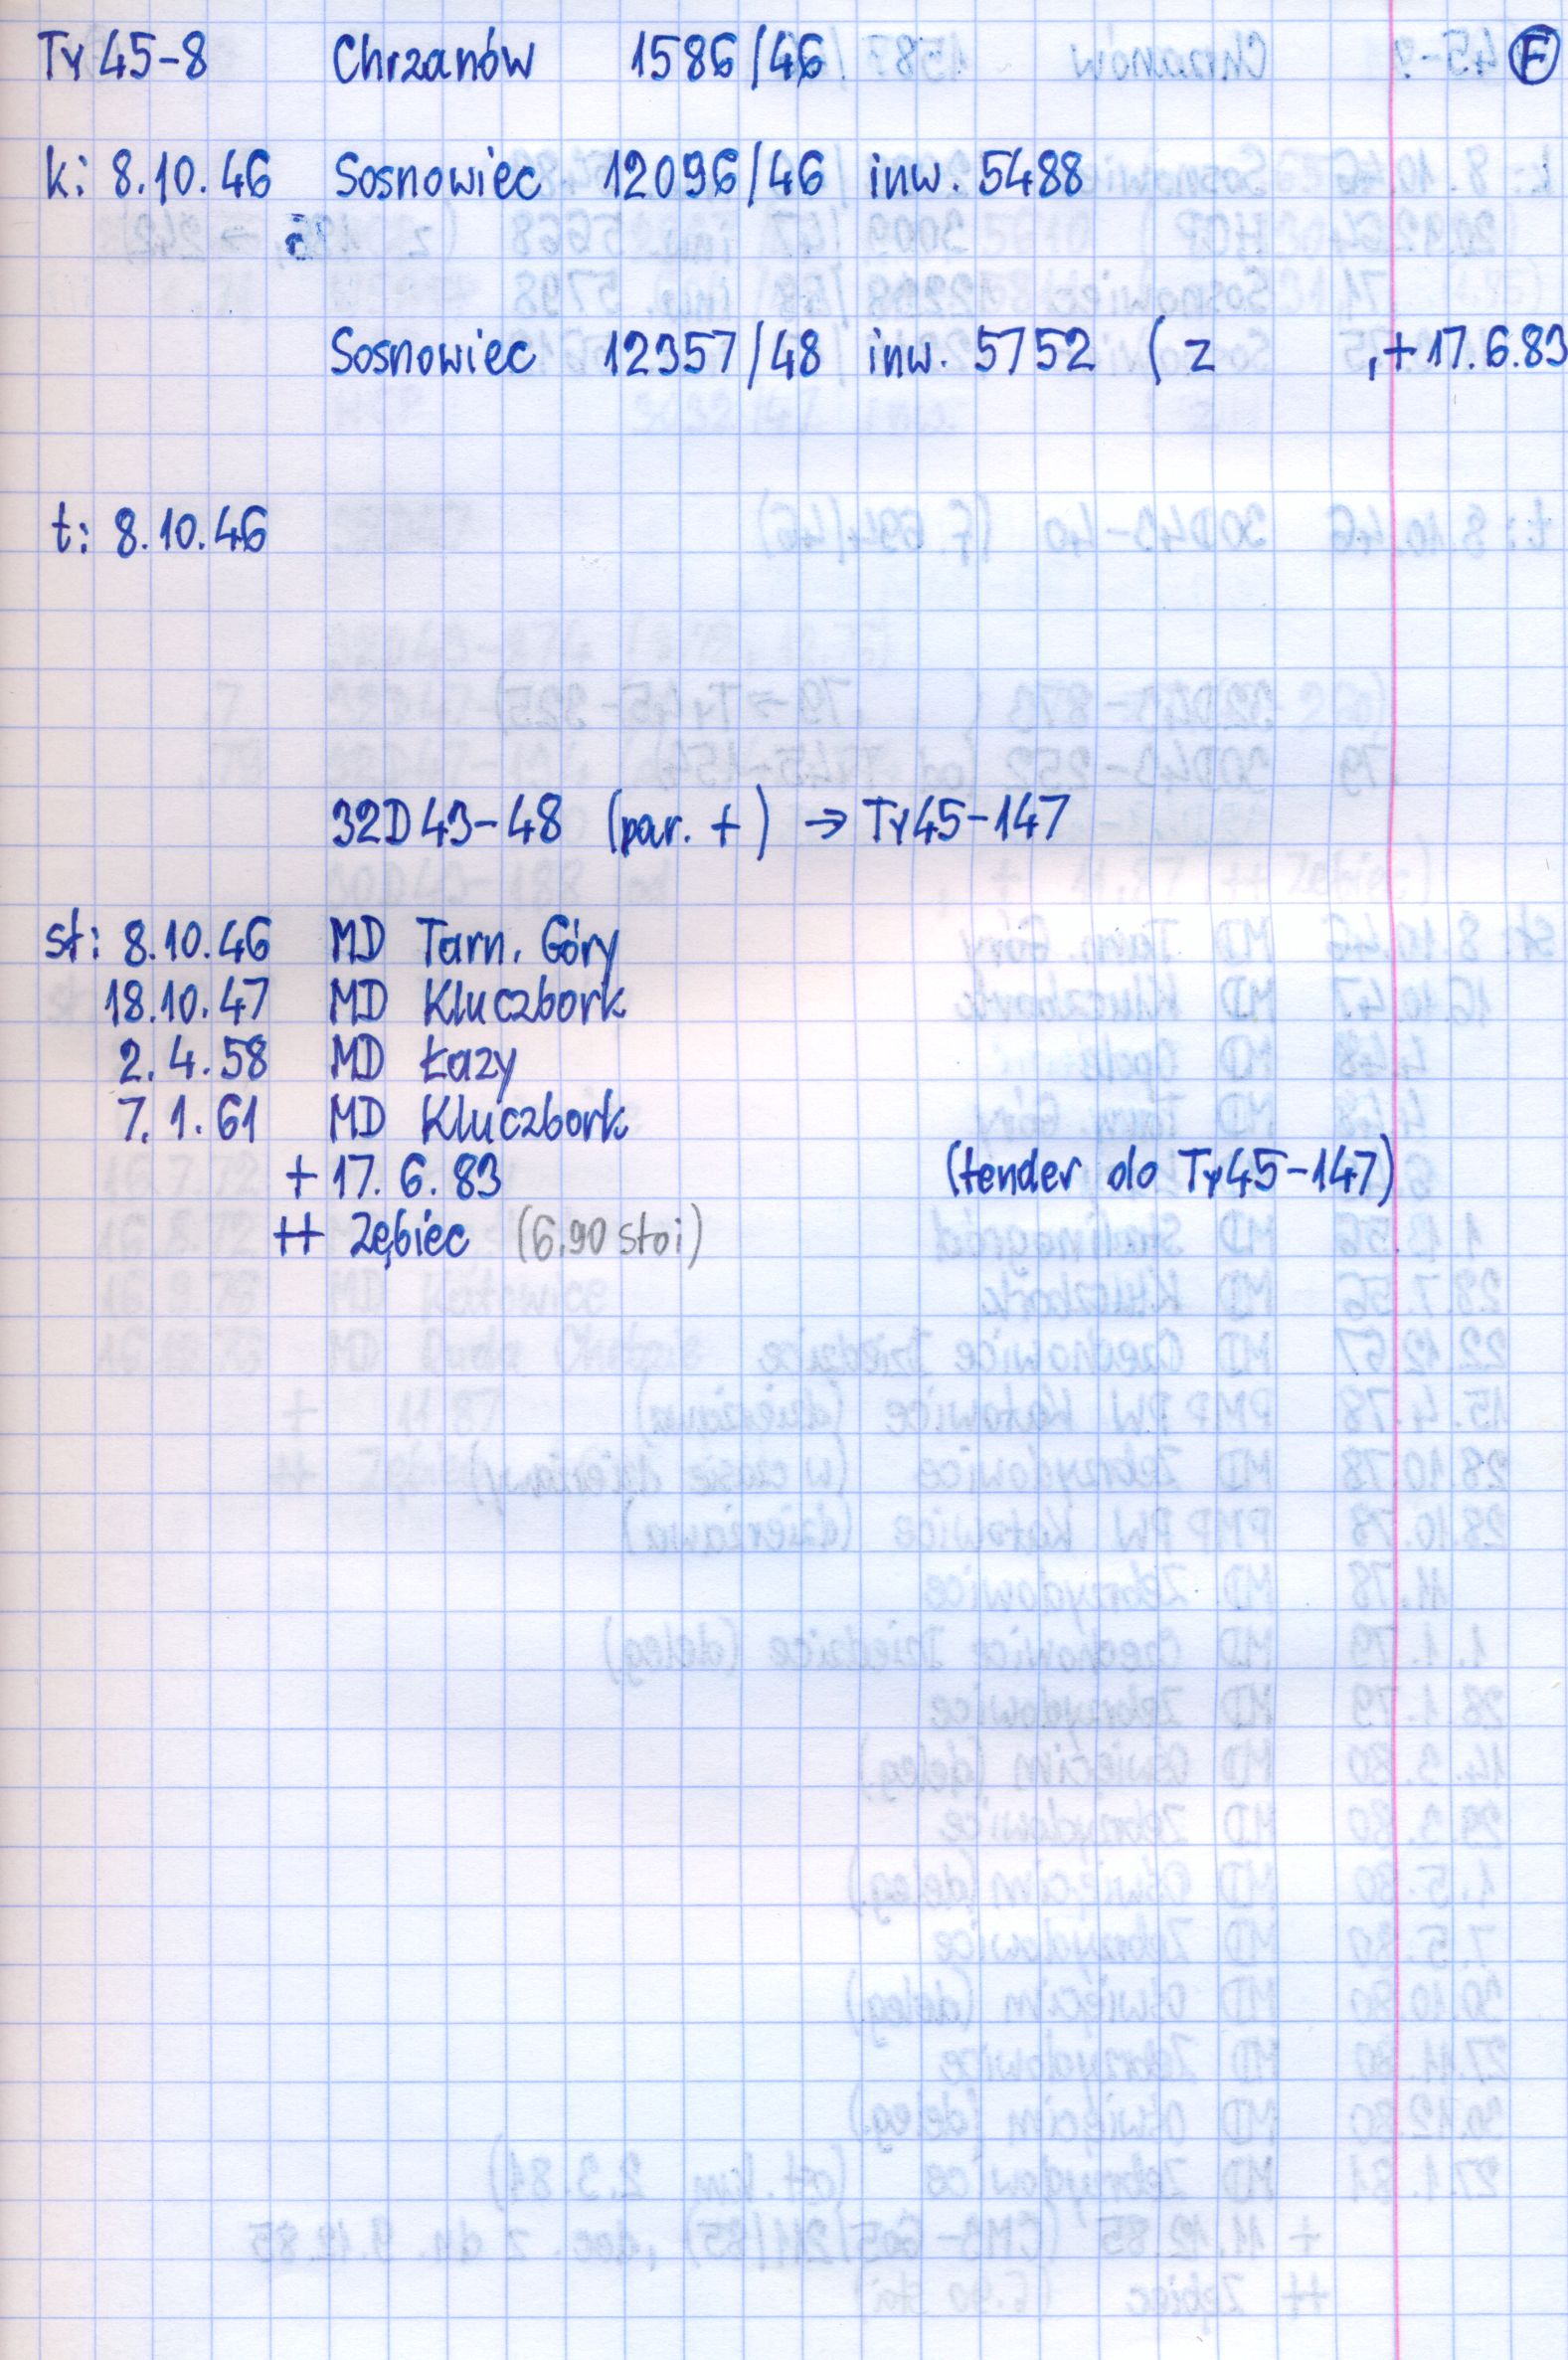 Ty45-8 Chrzanów 1586/46 F
k: 8.10.46 Sosnowiec 12096/46 inw. 5488
Sosnowiec 12357/48 inw. 5752 ( z , + 17.6.83
t: 8.10.46
32D43-48 (par. +) → Ty45-147
st: 8.10.46 MD Tarn. Góry
18.10.47 MD Kluczbork
2.4.58 MD Łazy
7.1.61 MD Kluczbork
+ 17.6.83 (tender do Ty45-147)
++ Zębiec (6.90 stoi)